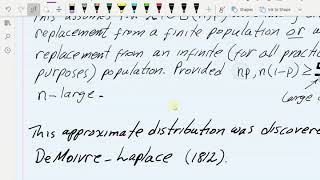 This assumes
replacement from a finite population or
replacement from an infinite (for all practic
purposes) population. Provided np, n(1-p) ≥ 5
n-large. Large
This approximate distribution was discovere
DeMoivre-Laplace (1812).